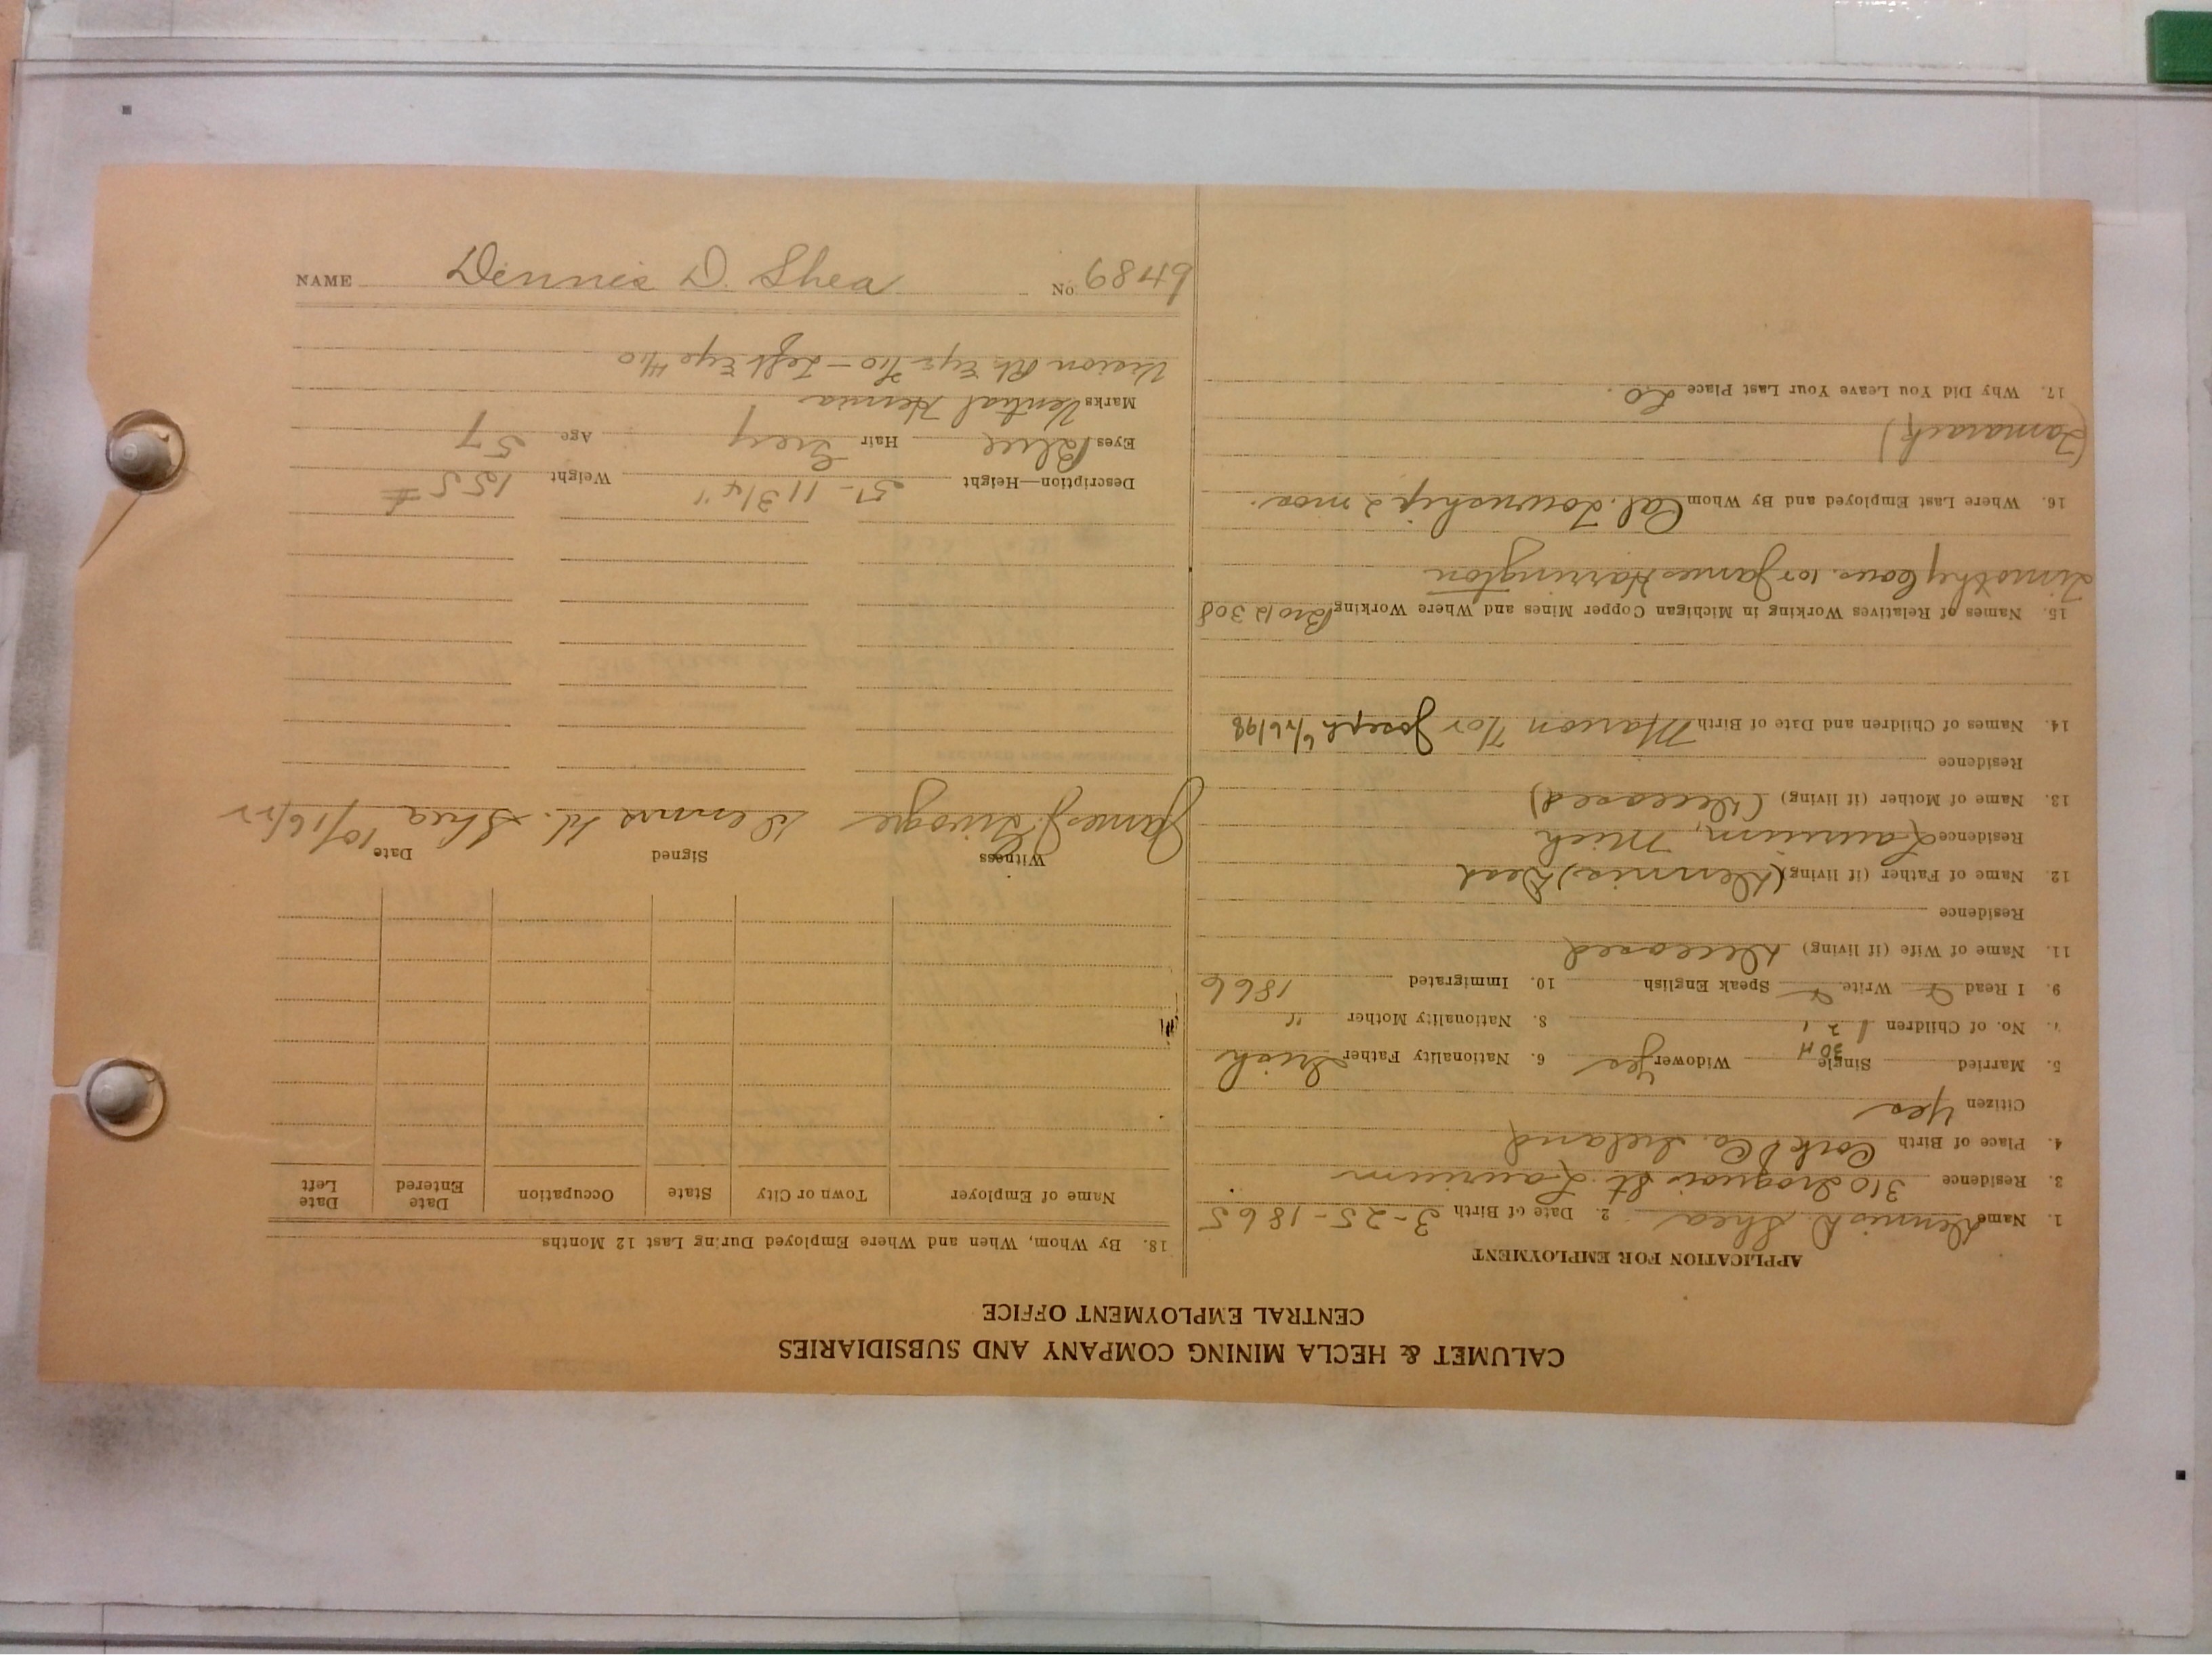 CALUMET & HECLA MINING COMPANY AND SUBSIDIARIES
CENTRAL EMPLOYMENT OFFICE
APPLICATION FOR EMPLOYMENT
1. Name Dennis D. Shea 2. Date of Birth 3-25-1865
3. Residence 310 Iroquois St. Laurium
4. Place of Birth Cork Co. Ireland
Citizen Yes
5. Married Single Widower Yes 6. Nationality Father Irish
7. No. of Children 8. Nationality Mother "
9. I Read Write Speak English 10. Immigrated 1866
11. Name of Wife (if living) Deceased
Residence
12. Name of Father (if living) (Dennis) Dead
Residence Laurium, Mich
13. Name of Mother (if living) (Deceased)
Residence
14. Names of Children and Date of Birth Marion Joseph 6/26/98
15. Names of Relatives Working in Michigan Copper Mines and Where Working Bro 12308
Timothy Cous. James Harrington
16. Where Last Employed and By Whom Cal. Township 2 mos.
(Tamarack)
17. Why Did You Leave Your Last Place LO
18. By Whom, When and Where Employed During Last 12 Months
Name of Employer Town or City State Occupation Date Entered Date Left
Witness Signed Date 10/16/22
James J. Dennis D. Shea
Description—Height 5'-11 3/4" Weight 155 #
Eyes Blue Hair Grey Age 57
Marks Ventral Hernia
Vision Rt Eye 7/10 - Left Eye 4/10
NAME Dennis D. Shea No. 68469